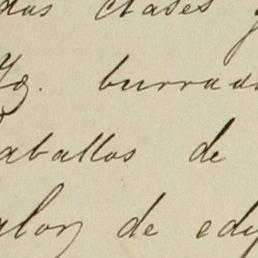 das clases y
burrada
aballos de
alor de edi